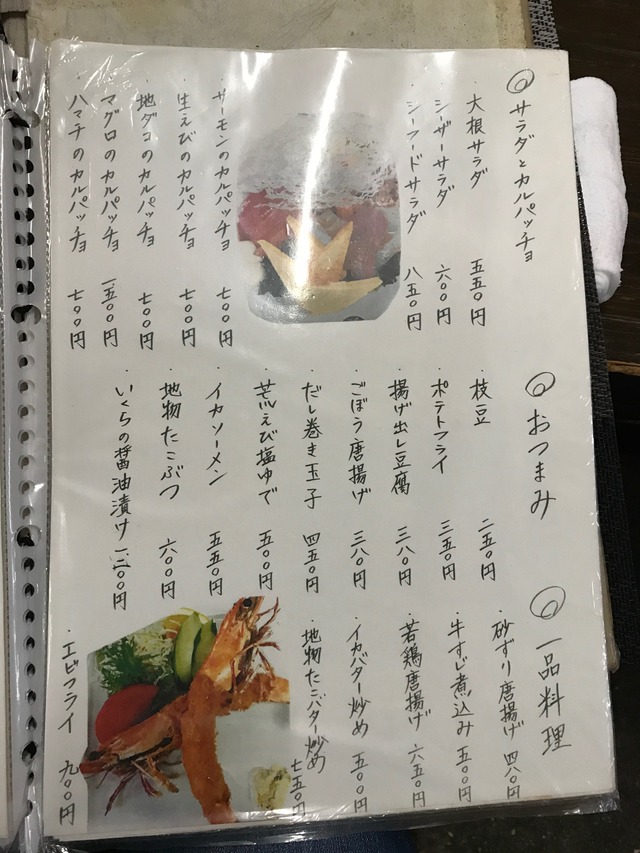 ◎サラダとカルパッチョ
・大根サラダ 五五〇円
・シーザーサラダ 六〇〇円
・シーフードサラダ 八五〇円
・サーモンのカルパッチョ 七〇〇円
・生えびのカルパッチョ 七〇〇円
・地ダコのカルパッチョ 七〇〇円
・マグロのカルパッチョ 一五〇〇円
・ハマチのカルパッチョ 七〇〇円
◎おつまみ
・枝豆 二五〇円
・ポテトフライ 三五〇円
・揚げ出し豆腐 三八〇円
・ごぼう唐揚げ 三八〇円
・だし巻き玉子 四五〇円
・荒えび塩ゆで 五〇〇円
・イカソーメン 五五〇円
・地物たこぶつ 六〇〇円
・いくらの醤油漬け 一、二〇〇円
◎一品料理
・砂ずり唐揚げ 四八〇円
・牛すじ煮込み 五〇〇円
・若鶏唐揚げ 六五〇円
・イカバター炒め 五〇〇円
・地物たこバター炒め 七五〇円
・エビフライ 九〇〇円